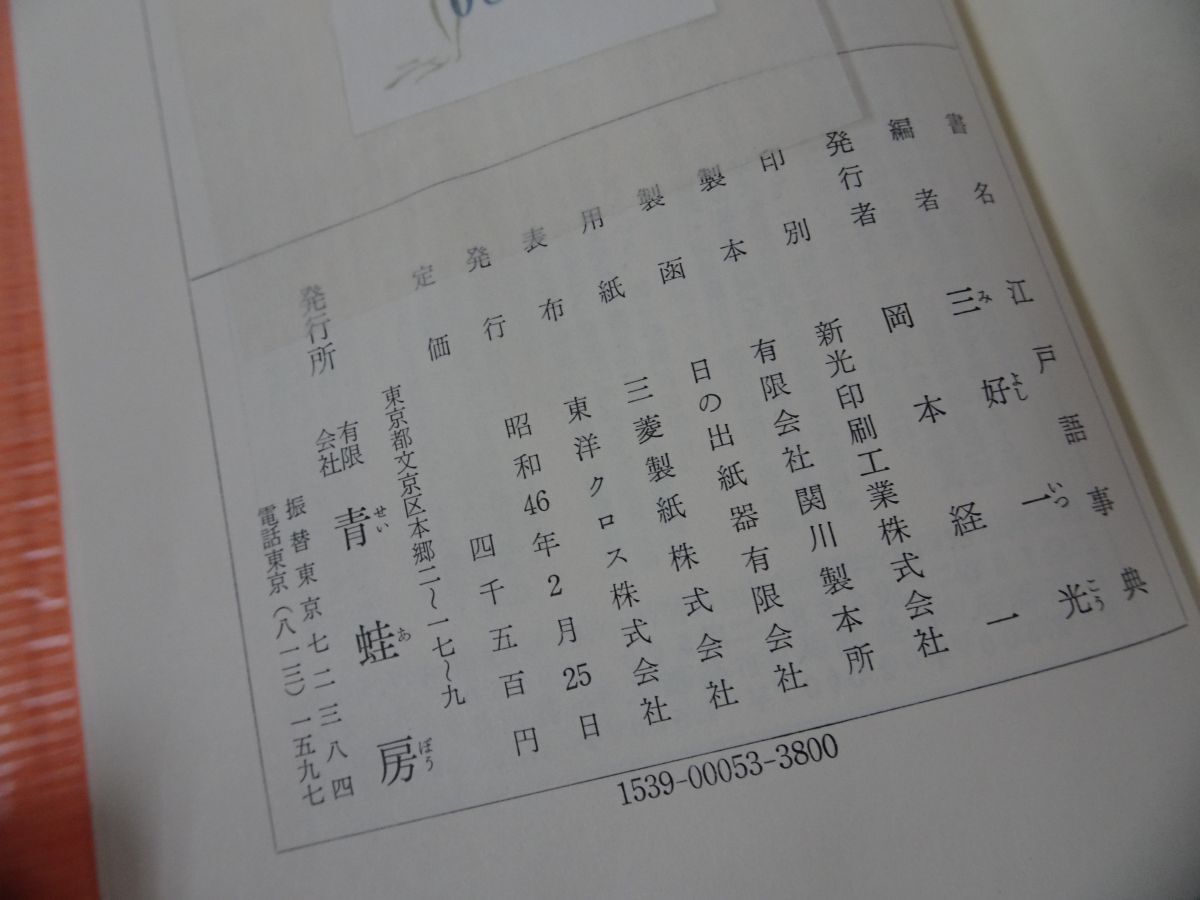 書名 江戸語事典
編者 三好一光
みよしいつこう
発行者 岡本経一
印別 新光印刷工業株式会社
製本 有限会社関川製本所
製函 日の出紙器有限会社
用紙 三菱製紙株式会社
表布 東洋クロス株式会社
発行 昭和46年2月25日
定価 四千五百円
東京都文京区本郷二〜一七〜九
発行所 有限会社 青蛙房
せいあぼう
振替東京七二三八四
電話東京(八一三)一五九七
1539-00053-3800